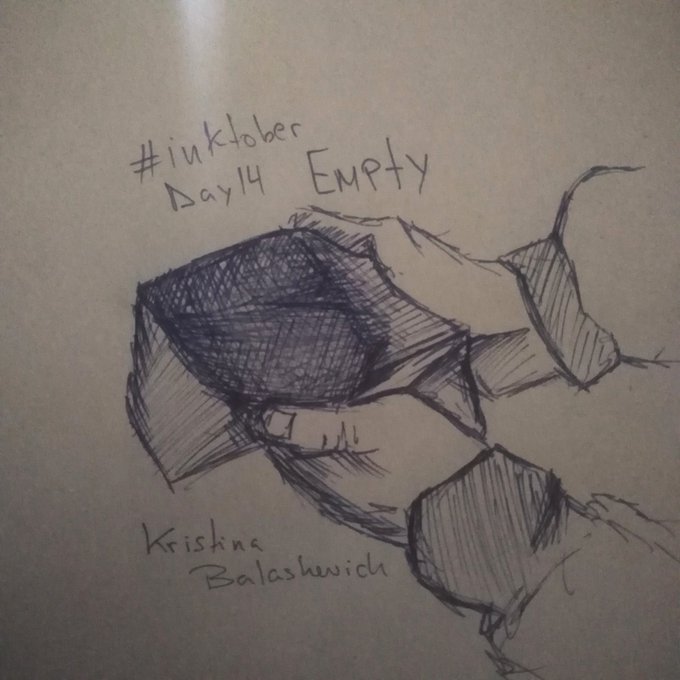 #inktober
Day 14 Empty
Kristina
Balashevich